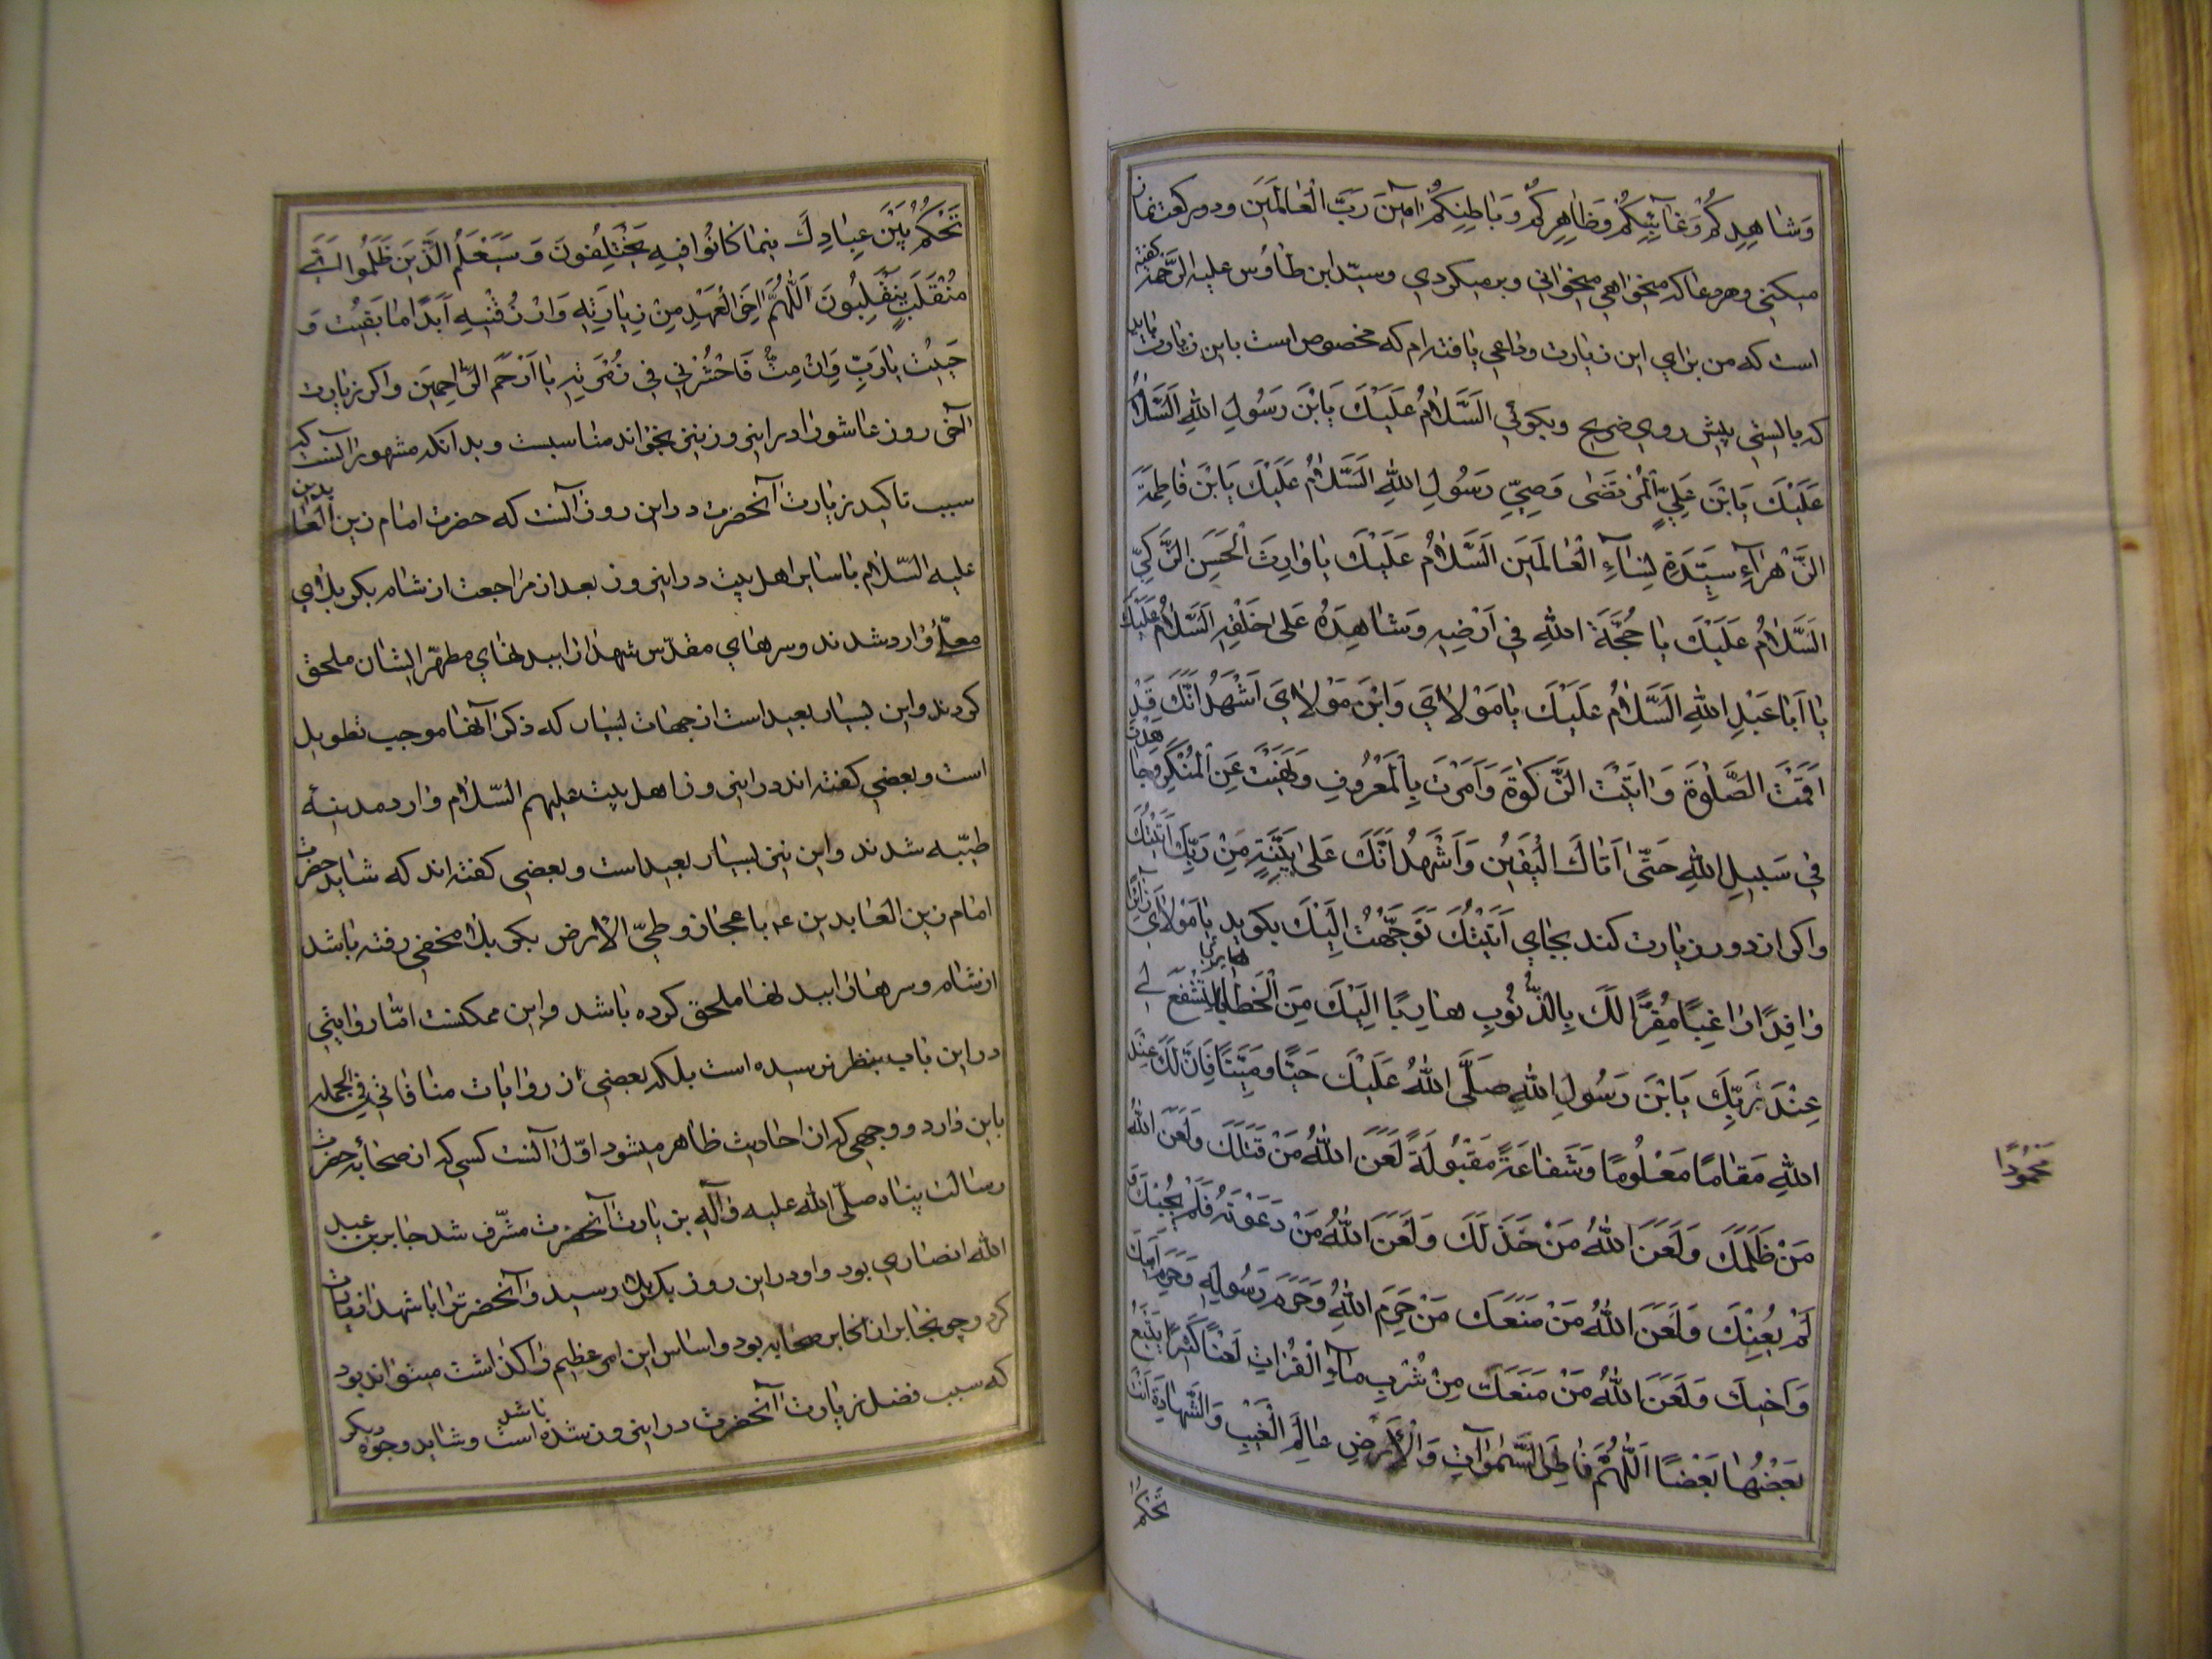 وَشاهِدِكُمْ وَغآئِبِكُمْ وَظاهِرِكُمْ وَباطِنِكُمْ امينَ رَبَّ الْعالَمينَ ودو ركعت نماز
ميكني وهر دعا كه ميخواهي ميخواني وبر ميكردي وسيّد ابن طاوس عليه الرّحمة كفته
است كه من براي اين زيارت وداعي يافته‌ام كه مخصوص است باين زيارت بايد
كه بايستي پيش روي ضريح وبكوئي السَّلامُ عَلَيْكَ يَابْنَ رَسُولِ اللهِ السَّلامُ
عَلَيْكَ يَابْنَ عَلِيٍّ الْمُرْتَضى وَصِيِّ رَسُولِ اللهِ السَّلامُ عَلَيْكَ يَابْنَ فاطِمَةَ
الزَّهْرآءِ سَيِّدَةِ نِسآءِ الْعالَمينَ السَّلامُ عَلَيْكَ يا وارِثَ الْحَسَنِ الزَّكِيِّ
السَّلامُ عَلَيْكَ يا حُجَّةَ اللهِ في اَرْضِهِ وَشاهِدَهُ عَلى خَلْقِهِ السَّلامُ عَلَيْكَ
يا اَبا عَبْدِ اللهِ السَّلامُ عَلَيْكَ يا مَوْلايَ وَابْنَ مَوْلايَ اَشْهَدُ اَنَّكَ قَدْ
اَقَمْتَ الصَّلوةَ وَاتَيْتَ الزَّكوةَ وَاَمَرْتَ بِالْمَعْرُوفِ وَنَهَيْتَ عَنِ الْمُنْكَرِ وَجاهَدْتَ
في سَبيلِ اللهِ حَتّى اَتاكَ الْيَقينُ وَاَشْهَدُ اَنَّكَ عَلى بَيِّنَةٍ مِنْ رَبِّكَ اَتَيْتُكَ
واكر از دور زيارت كند بجاي اَتَيْتُكَ تَوَجَّهْتُ اِلَيْكَ بكويد يا مَوْلايَ زائِرًا
وافِدًا راغِبًا مُقِرًّا لَكَ بِالذُّنُوبِ هارِبًا اِلَيْكَ مِنَ الْخَطايا لِتَشْفَعَ لي
عِنْدَ رَبِّكَ يَابْنَ رَسُولِ اللهِ صَلَّى اللهُ عَلَيْكَ حَيًّا وَمَيِّتًا فَاِنَّ لَكَ عِنْدَ
اللهِ مَقامًا مَعْلُومًا وَشَفاعَةً مَقْبُولَةً لَعَنَ اللهُ مَنْ قَتَلَكَ وَلَعَنَ اللهُ
مَنْ ظَلَمَكَ وَلَعَنَ اللهُ مَنْ خَذَلَكَ وَلَعَنَ اللهُ مَنْ دَعَوْتَهُ فَلَمْ يُجِبْكَ وَ
لَمْ يُعِنْكَ وَلَعَنَ اللهُ مَنْ مَنَعَكَ مِنْ حَرَمِ اللهِ وَحَرَمِ رَسُولِهِ وَحَرَمِ اَبيكَ
وَاَخيكَ وَلَعَنَ اللهُ مَنْ مَنَعَكَ مِنْ شُرْبِ مآءِ الْفُراتِ لَعْنًا كَثيرًا يَتْبَعُ
بَعْضُها بَعْضًا اَللّهُمَّ فاطِرَ السَّمواتِ وَالْاَرْضِ عالِمَ الْغَيْبِ وَالشَّهادَةِ اَنْتَ
تَحْكُمُ
مَحْمُودًا
تَحْكُمُ بَيْنَ عِبادِكَ فيما كانُوا فيهِ يَخْتَلِفُونَ وَسَيَعْلَمُ الَّذينَ ظَلَمُوا اَيَّ
مُنْقَلَبٍ يَنْقَلِبُونَ اَللّهُمَّ لا تَجْعَلْهُ اخِرَ الْعَهْدِ مِنْ زِيارَتِهِ وَارْزُقْنيهِ اَبَدًا ما بَقيتُ وَ
حَييتُ يا رَبِّ وَاِنْ مِتُّ فَاحْشُرْني في زُمْرَتِهِ يا اَرْحَمَ الرّاحِمينَ واكر زيارت
آخر روز عاشورا در اينروز نيز بخواند مناسبست وبدانكه مشهور آنست كه
سبب تاكيد زيارت آنحضرت در اين روز آنست كه حضرت امام زين العابدين
عليه السّلام با ساير اهل بيت در اينروز بعد از مراجعت از شام بكربلاي
معلّى وارد شدند وسرهاي مقدّس شهدا را ببدنهاي مطهّر ايشان ملحق
كردند واين بسيار بعيد است از جهات بسيار كه ذكر آنها موجب تطويل
است وبعضي كفته‌اند در اينروز اهل بيت عليهم السّلام وارد مدينهٔ
طيّبه شدند واين نيز بسيار بعيد است وبعضي كفته‌اند كه شايد حضرت
امام زين العابدين ع باعجاز وطيّ الارض بكربلا مخفي رفته باشد
از شام وسرها را ببدنها ملحق كرده باشد واين ممكنست امّا روايتي
در اين باب بنظر نرسيده است بلكه بعضي از روايات منافاتي في الجمله
باين دارد ووجهي كه از احاديث ظاهر ميشود اوّل آنست كسي كه از صحابه حضرت
رسالت پناه صلّى الله عليه وآله بزيارت آنحضرت مشرّف شد جابر بن عبد
الله انصاري بود واو در اين روز بكربلا رسيد وآنحضرت را با شهدا زيارت
كرد وچون جابر از اكابر صحابه بود واساس اين امر عظيم را كذاشت ميتواند بود
كه سبب فضل زيارت آنحضرت در اينروز شده باشد است وشايد وجوه ديكر